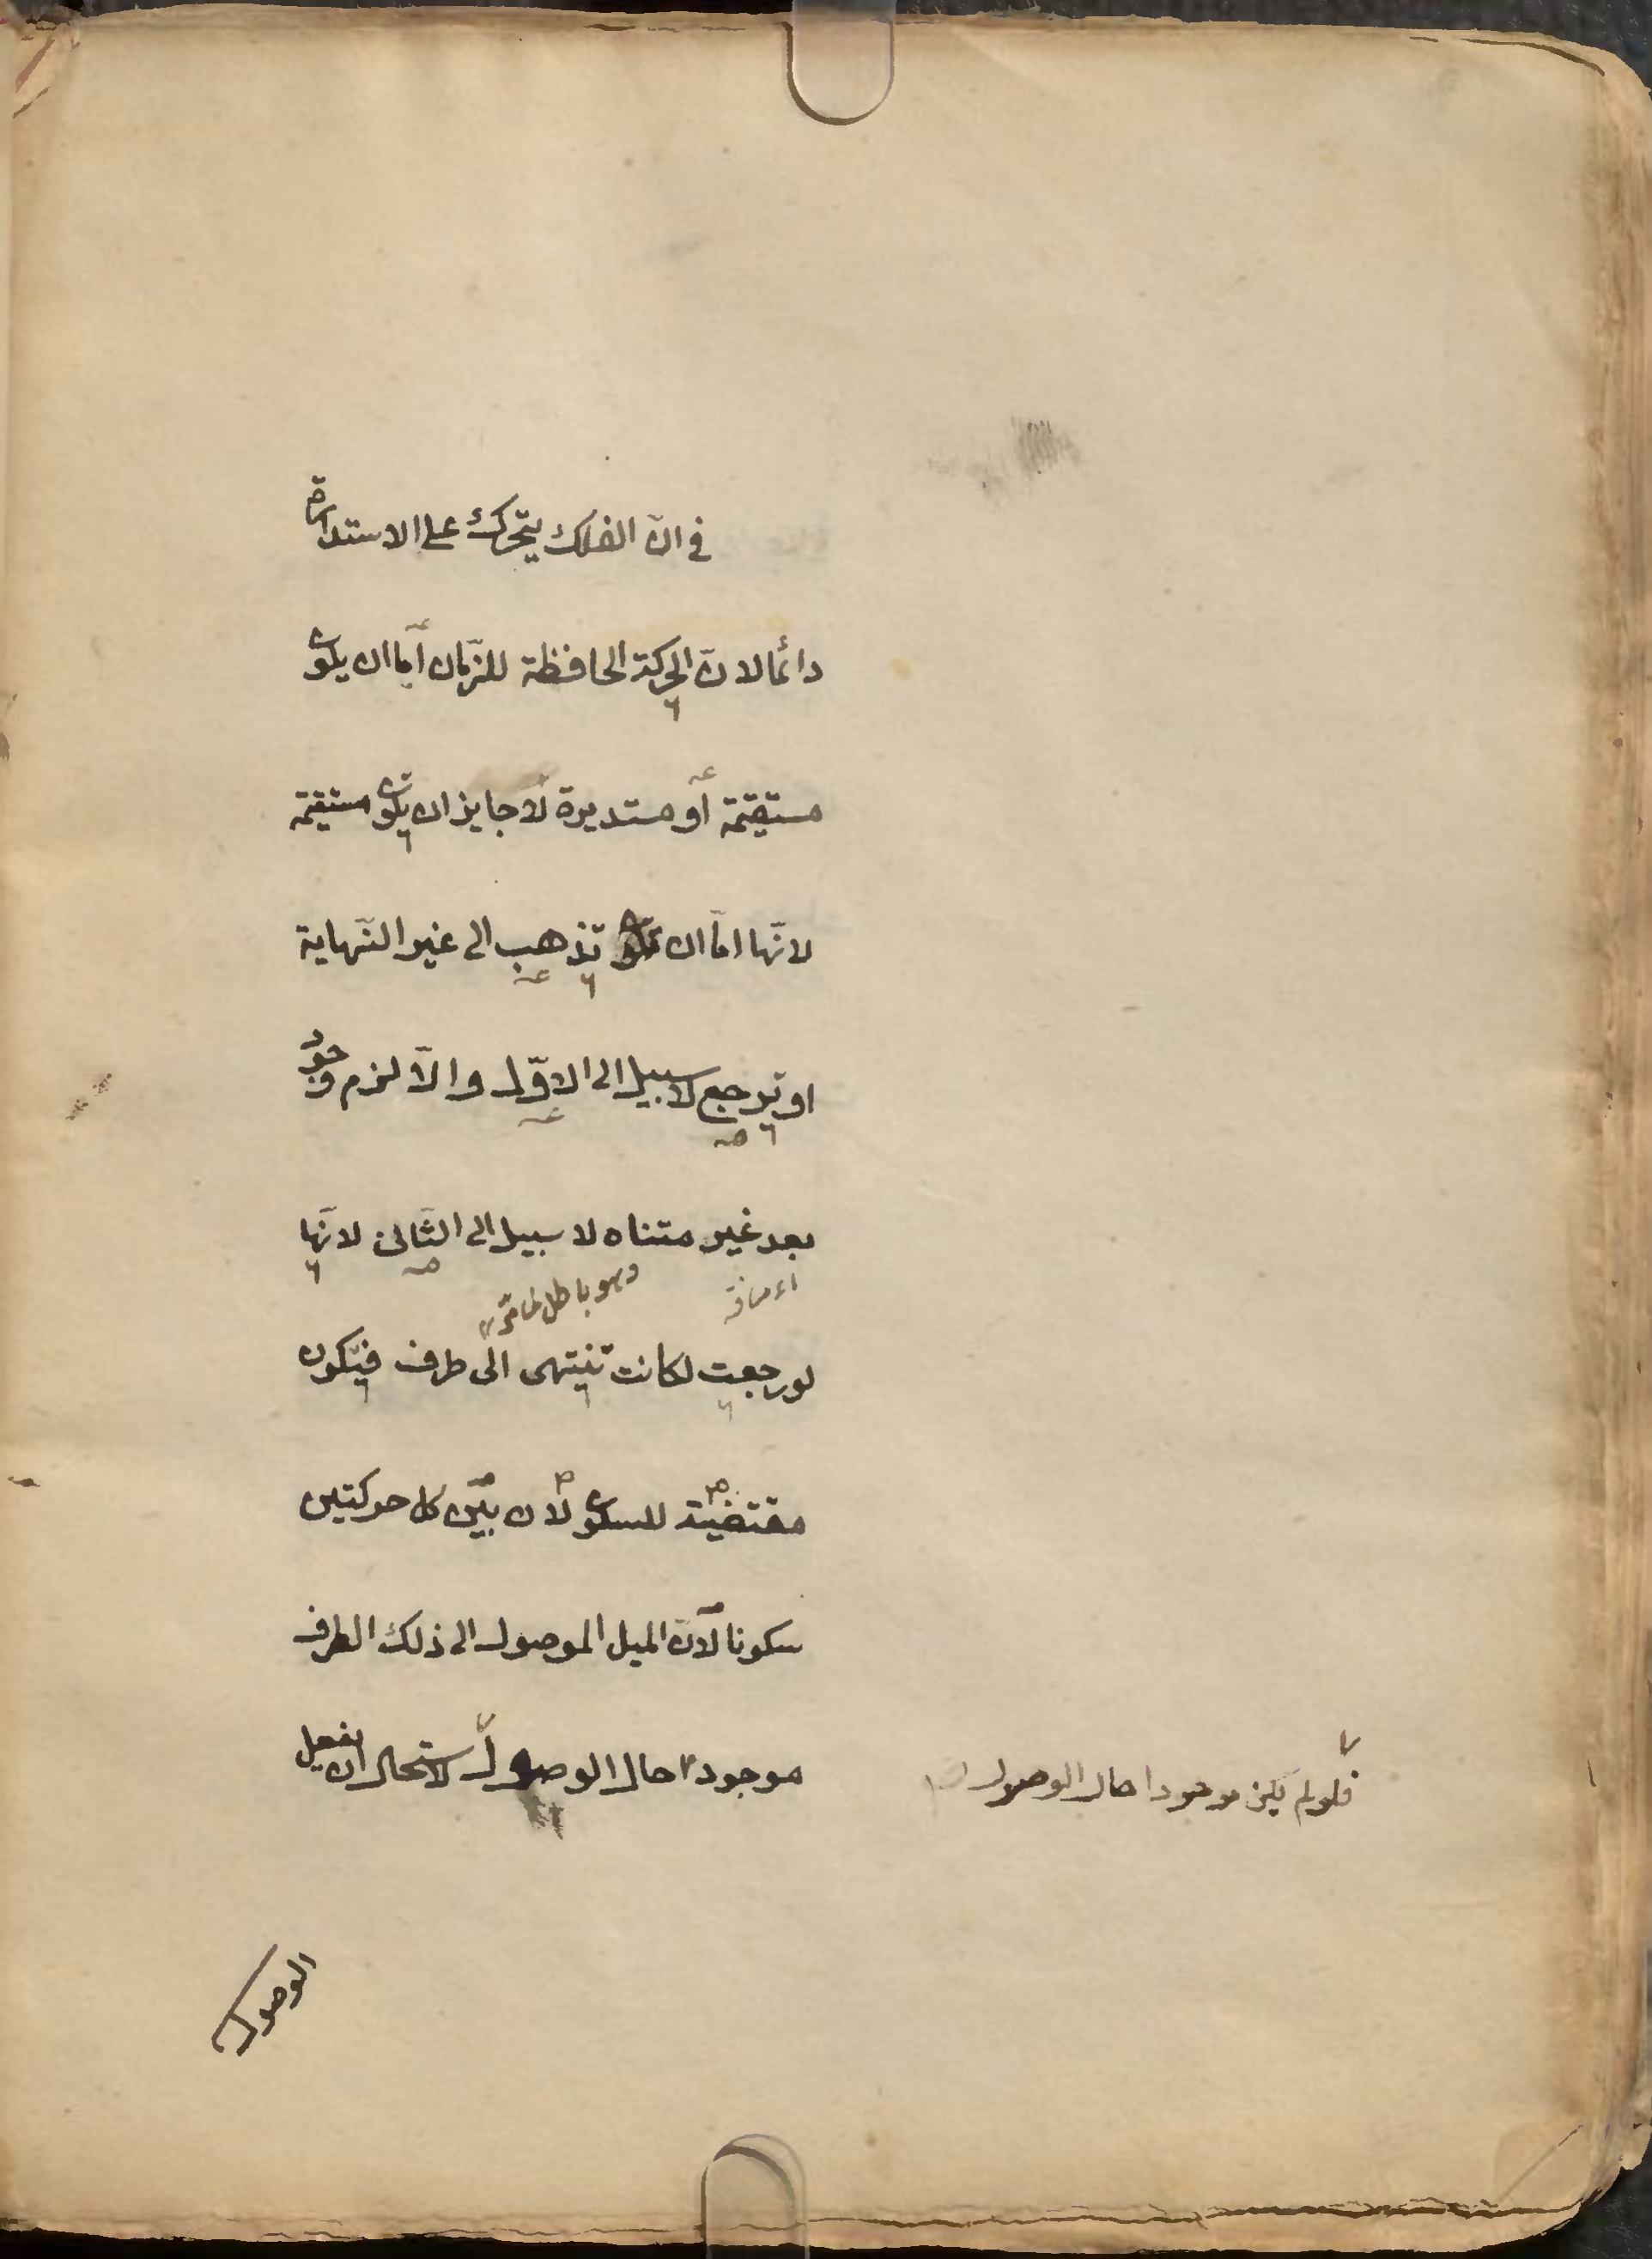 في انّ الفلك يتحرك على الاستدارة
دائما لانّ الحركة الحافظة للزّمان امّا ان يكون
مستقيمة او مستديرة لا جايز ان يكون مستقيمة
لانّها امّا ان تذهب الى غير النّهاية
او ترجع لا سبيل الى الاوّل والّا لزم وجود
بعد غير متناه لا سبيل الى الثّانى لانّها
وهو باطل لما مرّ
لو رجعت لكانت تنتهى الى طرف فيكون
مقتضية للسكون لان بين كل حركتين
سكونا لانّ الميل الموصول الى ذلك الطرف
موجود احال الوصول لاستحال ان يفعل
فلو لم يكن موجودا حال الوصول
الوصول